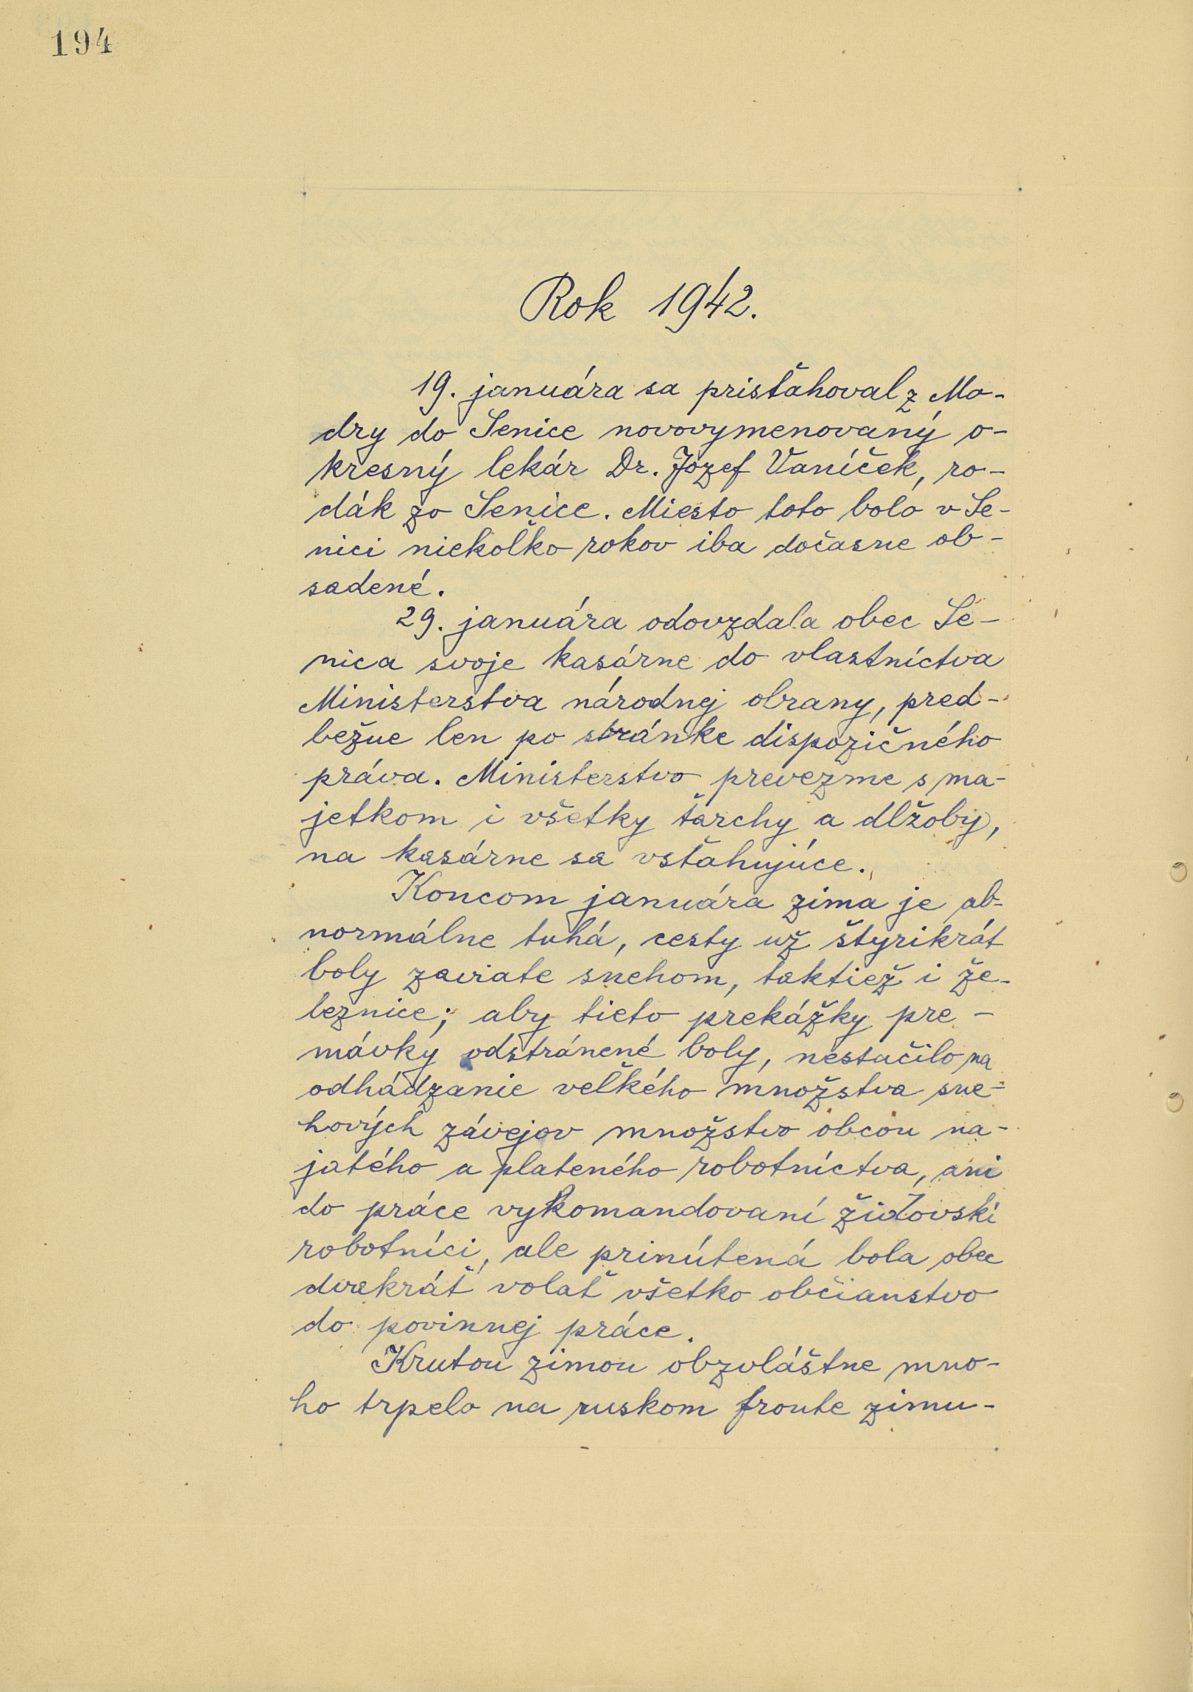 194
Rok 1942.
19. januára sa prisťahoval z Mo-
dry do Senice novovymenovaný o-
kresný lekár Dr. Jozef Vaníček, ro-
dák zo Senice. Miesto toto bolo v Se-
nici niekoľko rokov iba dočasne ob-
sadené.
29. januára odovzdala obec Se-
nica svoje kasárne do vlastníctva
Ministerstva národnej obrany, pred-
bežne len po stránke dispozičného
práva. Ministerstvo prevezme s ma-
jetkom i všetky ťarchy a dlžoby,
na kasárne sa vsťahujúce.
Koncom januára zima je ab-
normálne tuhá, cesty už štyrikrát
boly zaviate snehom, taktiež i že-
leznice; aby tieto prekážky pre-
mávky odstránené boly, nestačilo na
odhádzanie veľkého množstva sne-
hových závejov množstvo obcou na-
jatého a plateného robotníctva, ani
do práce vykomandovaní židovskí
robotníci, ale prinútená bola obec
dvakráť volať všetko občianstvo
do povinnej práce.
Krutou zimou obzvláštne mno-
ho trpelo na ruskom fronte zimu-